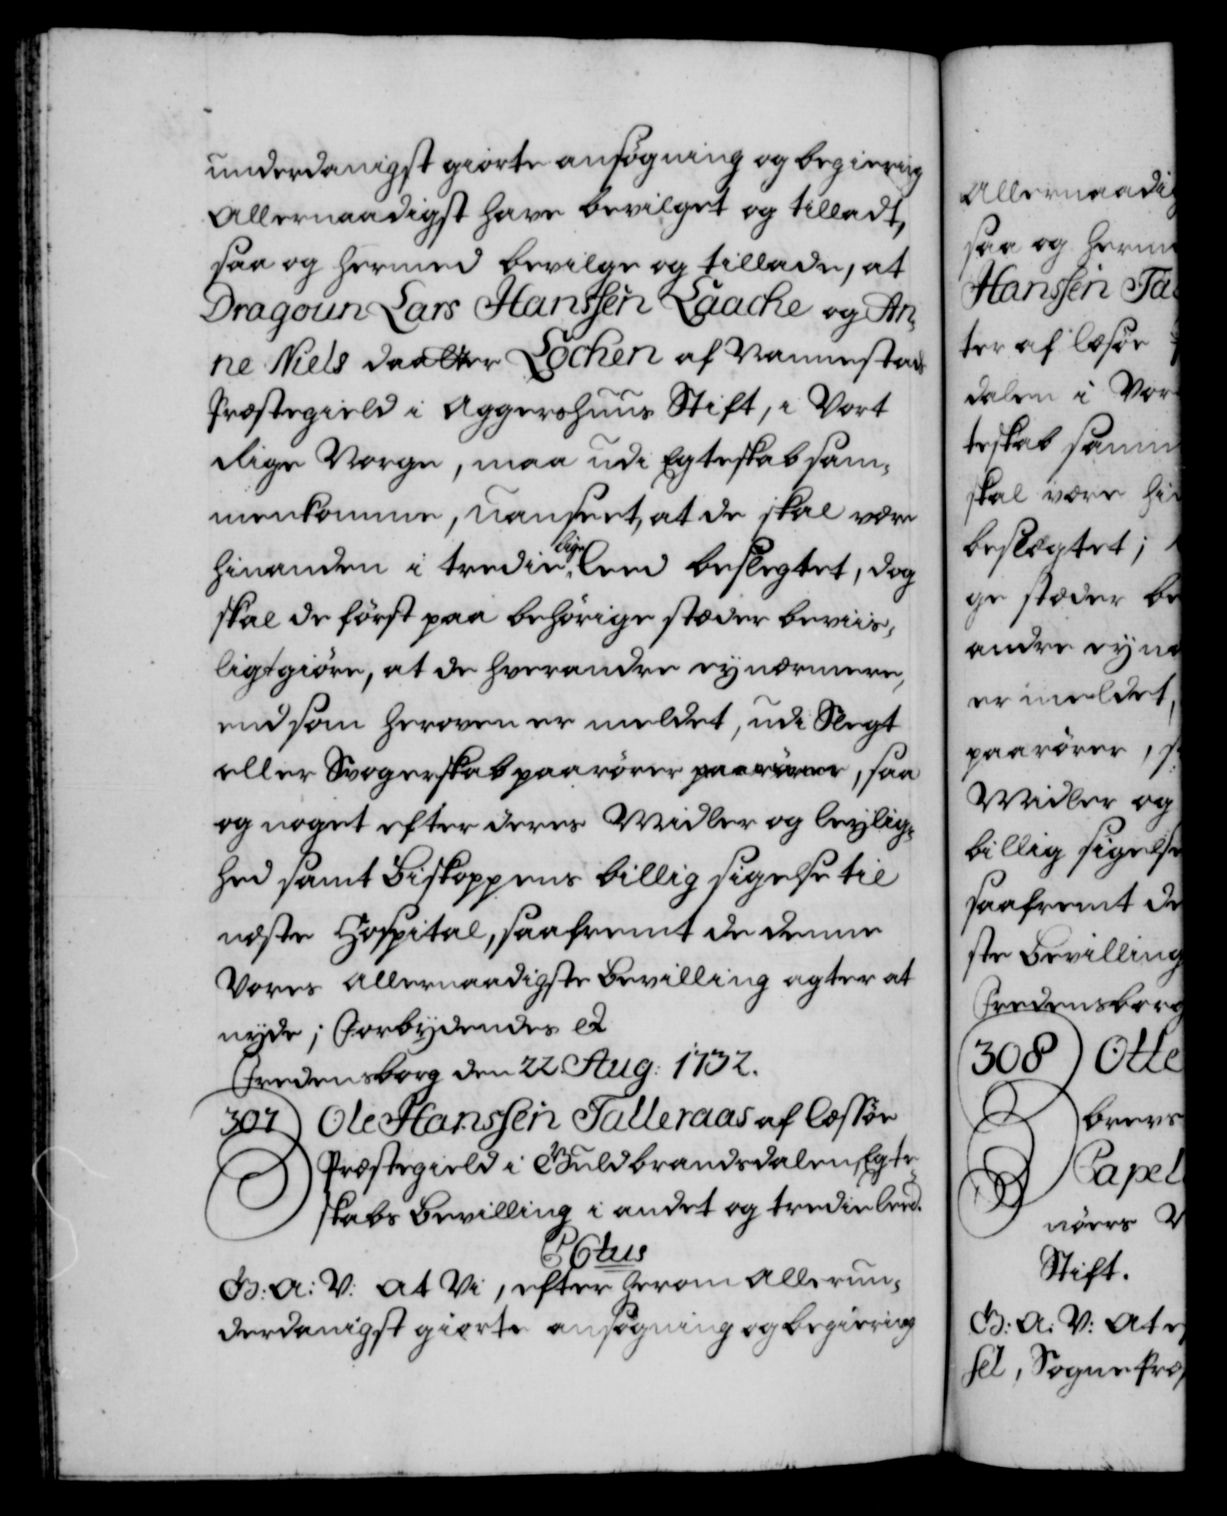 underdanigst giorte ansøgning og begiering
Allernaadigst have bevilget og tilladt,
saa og hermed bevilge og tillade, at
Dragoun Lars Hanssen Laache og An,
ne Niels daatter Løchen af Vannestads
Præstegield i Aggershuus Stift, i Vort
Rige Norge, maa udi Egteskab sam,
menkomme, Uanseet, at de skal være
hinanden i tredie lige leed beslegtet, dog
skal de først paa behørige stæder beviis,
ligtgiøre, at de hverandre ey nærmere,
end som heroven er meldet, udi Slegt
eller Svogerskab paarører paarører, saa
og noget efter deres Midler og leylig,
hed samt Biskoppens billig sigelse til
næste Hospital, saafremt de denne
Vores Allernaadigste Bevilling agter at
nyde; Forbydendes &
Fredensborg den 22 Aug: 1732.
307 Ole Hanssen Talleraas af Læssøe
Præstegield i Guldbrandsdalen, Egte,
skabs Bevilling i andet og tredie leed.
C6tus
G: A: V: At Vi, efter herom Allerun,
derdanigst giorte ansøgning og begiering
Allernaadig
saa og herme
Hanssen Ta
ter af Læsøe
dalen i Vor
teskab samm
skal være hi
beslegtet;
ge stæder be
andre ey næ
er meldet,
paarører, s
Midler og
billig sigelse
saafremt de
ste Bevilling
Fredensborg
308 Otte
brevs
Capel
nøers
Stift.
G: A: V: At
sel, Sognepræ